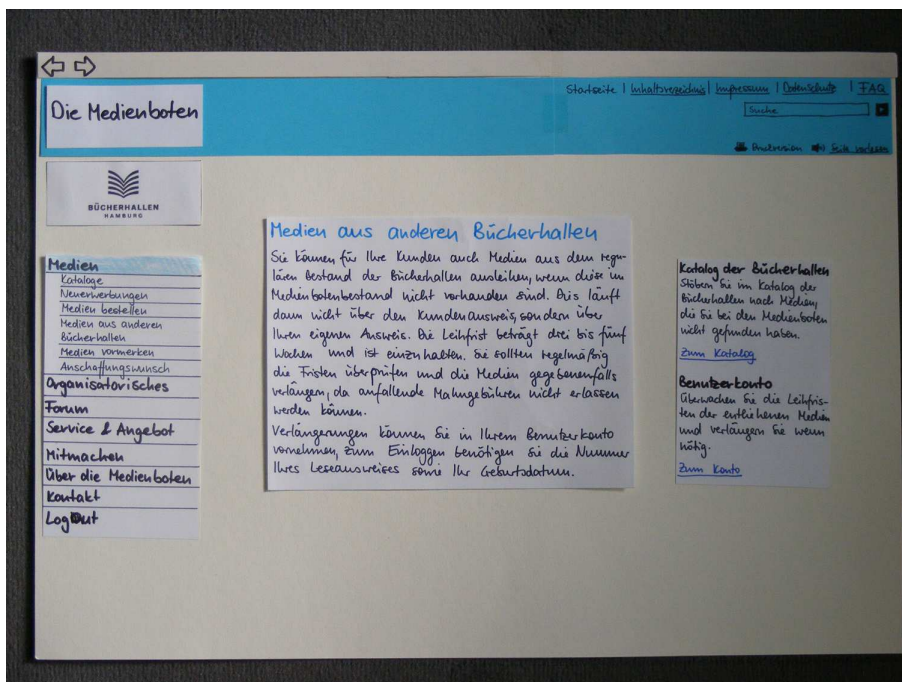 Die Medienboten
Startseite | Inhaltsverzeichnis | Impressum | Datenschutz | FAQ
Suche
Druckversion Seite vorlesen
BÜCHERHALLEN
HAMBURG
Medien
Kataloge
Neuerwerbungen
Medien bestellen
Medien aus anderen
Bücherhallen
Medien vormerken
Anschaffungswunsch
Organisatorisches
Forum
Service & Angebot
Mitmachen
Über die Medienboten
Kontakt
LogOut
Medien aus anderen Bücherhallen
Sie können für Ihre Kunden auch Medien aus dem regu-
lären Bestand der Bücherhallen ausleihen, wenn diese im
Medienbotenbestand nicht vorhanden sind. Dies läuft
dann nicht über den Kundenausweis, sondern über
Ihren eigenen Ausweis. Die Leihfrist beträgt drei bis fünf
Wochen und ist einzuhalten. Sie sollten regelmäßig
die Fristen überprüfen und die Medien gegebenenfalls
verlängern, da anfallende Mahngebühren nicht erlassen
werden können.
Verlängerungen können Sie in Ihrem Benutzerkonto
vornehmen, zum Einloggen benötigen Sie die Nummer
Ihres Leseausweises sowie Ihr Geburtsdatum.
Katalog der Bücherhallen
Stöbern Sie im Katalog der
Bücherhallen nach Medien,
die Sie bei den Medienboten
nicht gefunden haben.
Zum Katalog
Benutzerkonto
Überwachen Sie die Leihfris-
ten der entliehenen Medien
und verlängern Sie wenn
nötig.
Zum Konto